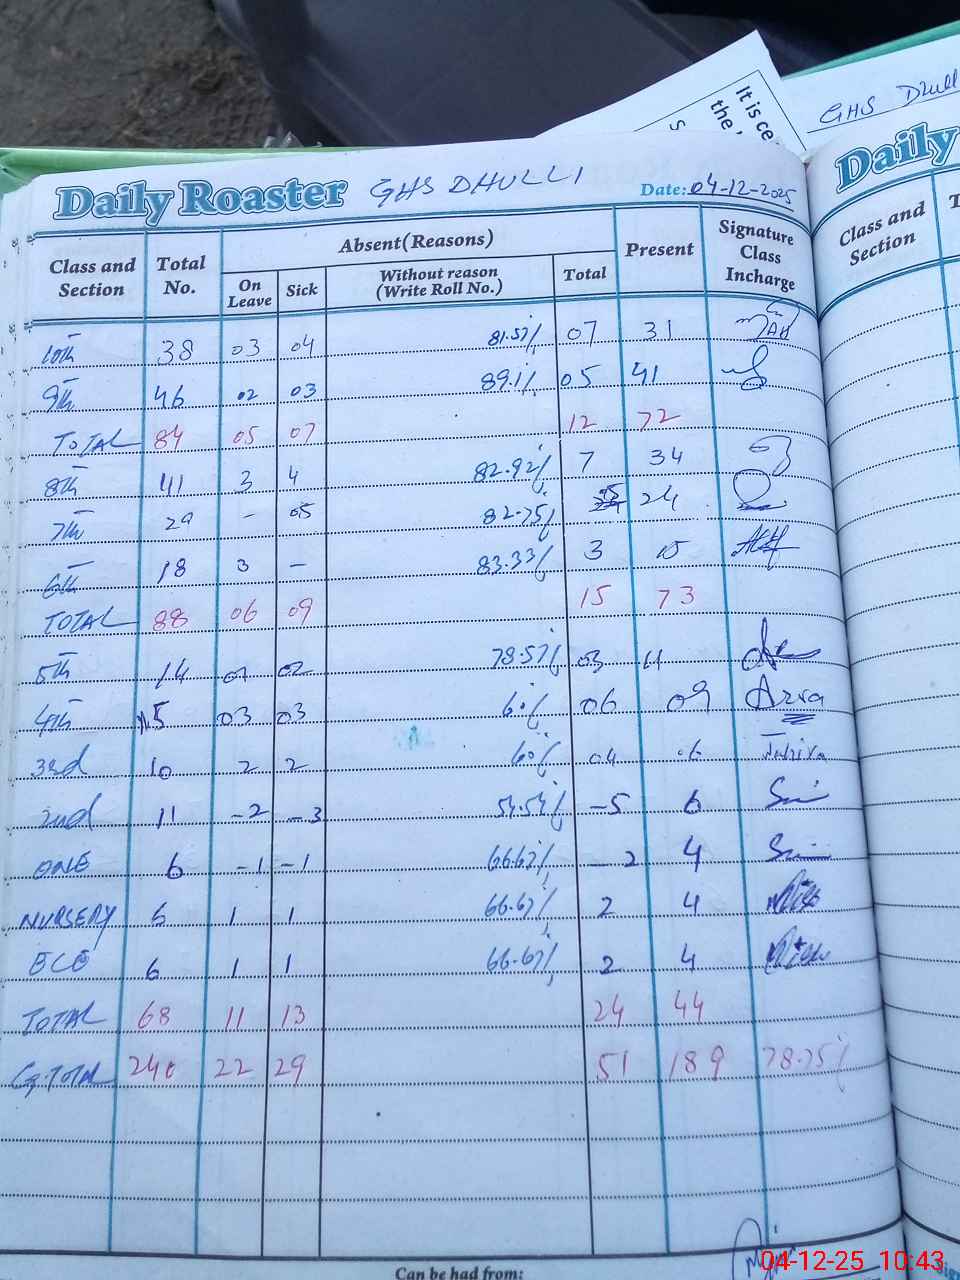 It is ce
the
S
GHS Dhull
Daily Roaster GHS DHULLI Date: 04-12-2025
Daily
Class and Section Total No. Absent(Reasons) Present Signature Class Incharge
On Leave Sick Without reason (Write Roll No.) Total
Class and Section T
10th 38 03 04 81.57% 07 31
9th 46 02 03 89.1% 05 41
TOTAL 84 05 07 12 72
8th 41 3 4 82.92% 7 34
7th 29 - 05 82.75% 05 24
6th 18 3 - 83.33% 3 15
TOTAL 88 06 09 15 73
5th 14 01 02 78.57% 03 11
4th 15 03 03 60% 06 09
3rd 10 2 2 60% 04 06
2nd 11 -2 -3 54.54% -5 6
ONE 6 -1 -1 66.67% - 2 4
NURSERY 6 1 1 66.67% 2 4
ECE 6 1 1 66.67% 2 4
TOTAL 68 11 13 24 44
G.TOTAL 240 22 29 51 189 78.75%
Can be had from:
04-12-25 10:43